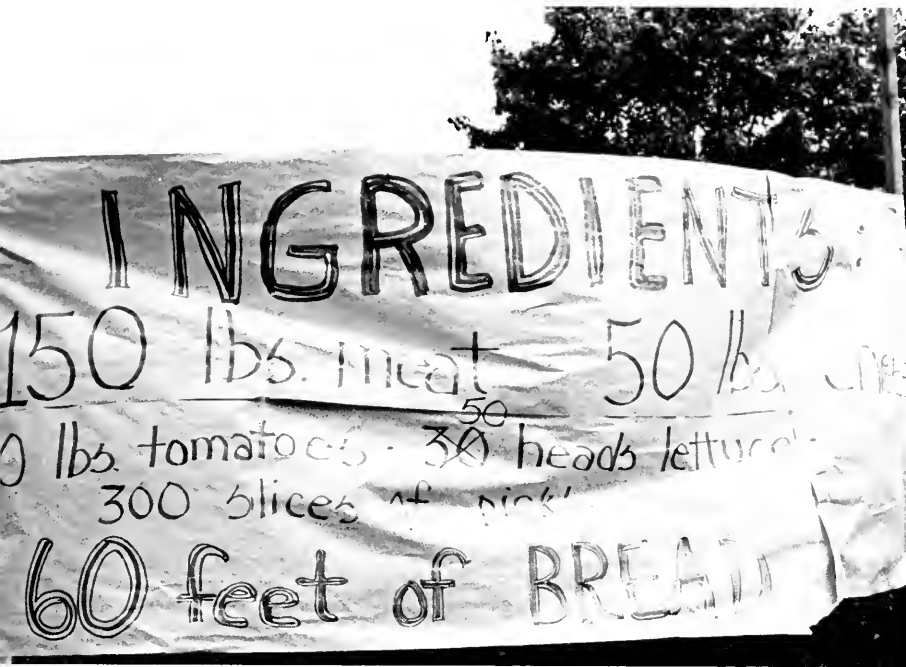 INGREDIENTS:
150 lbs. meat - 50 lbs.
50
0 lbs. tomatoes - 30 heads lettuce
300 slices of
60 feet of BREAD